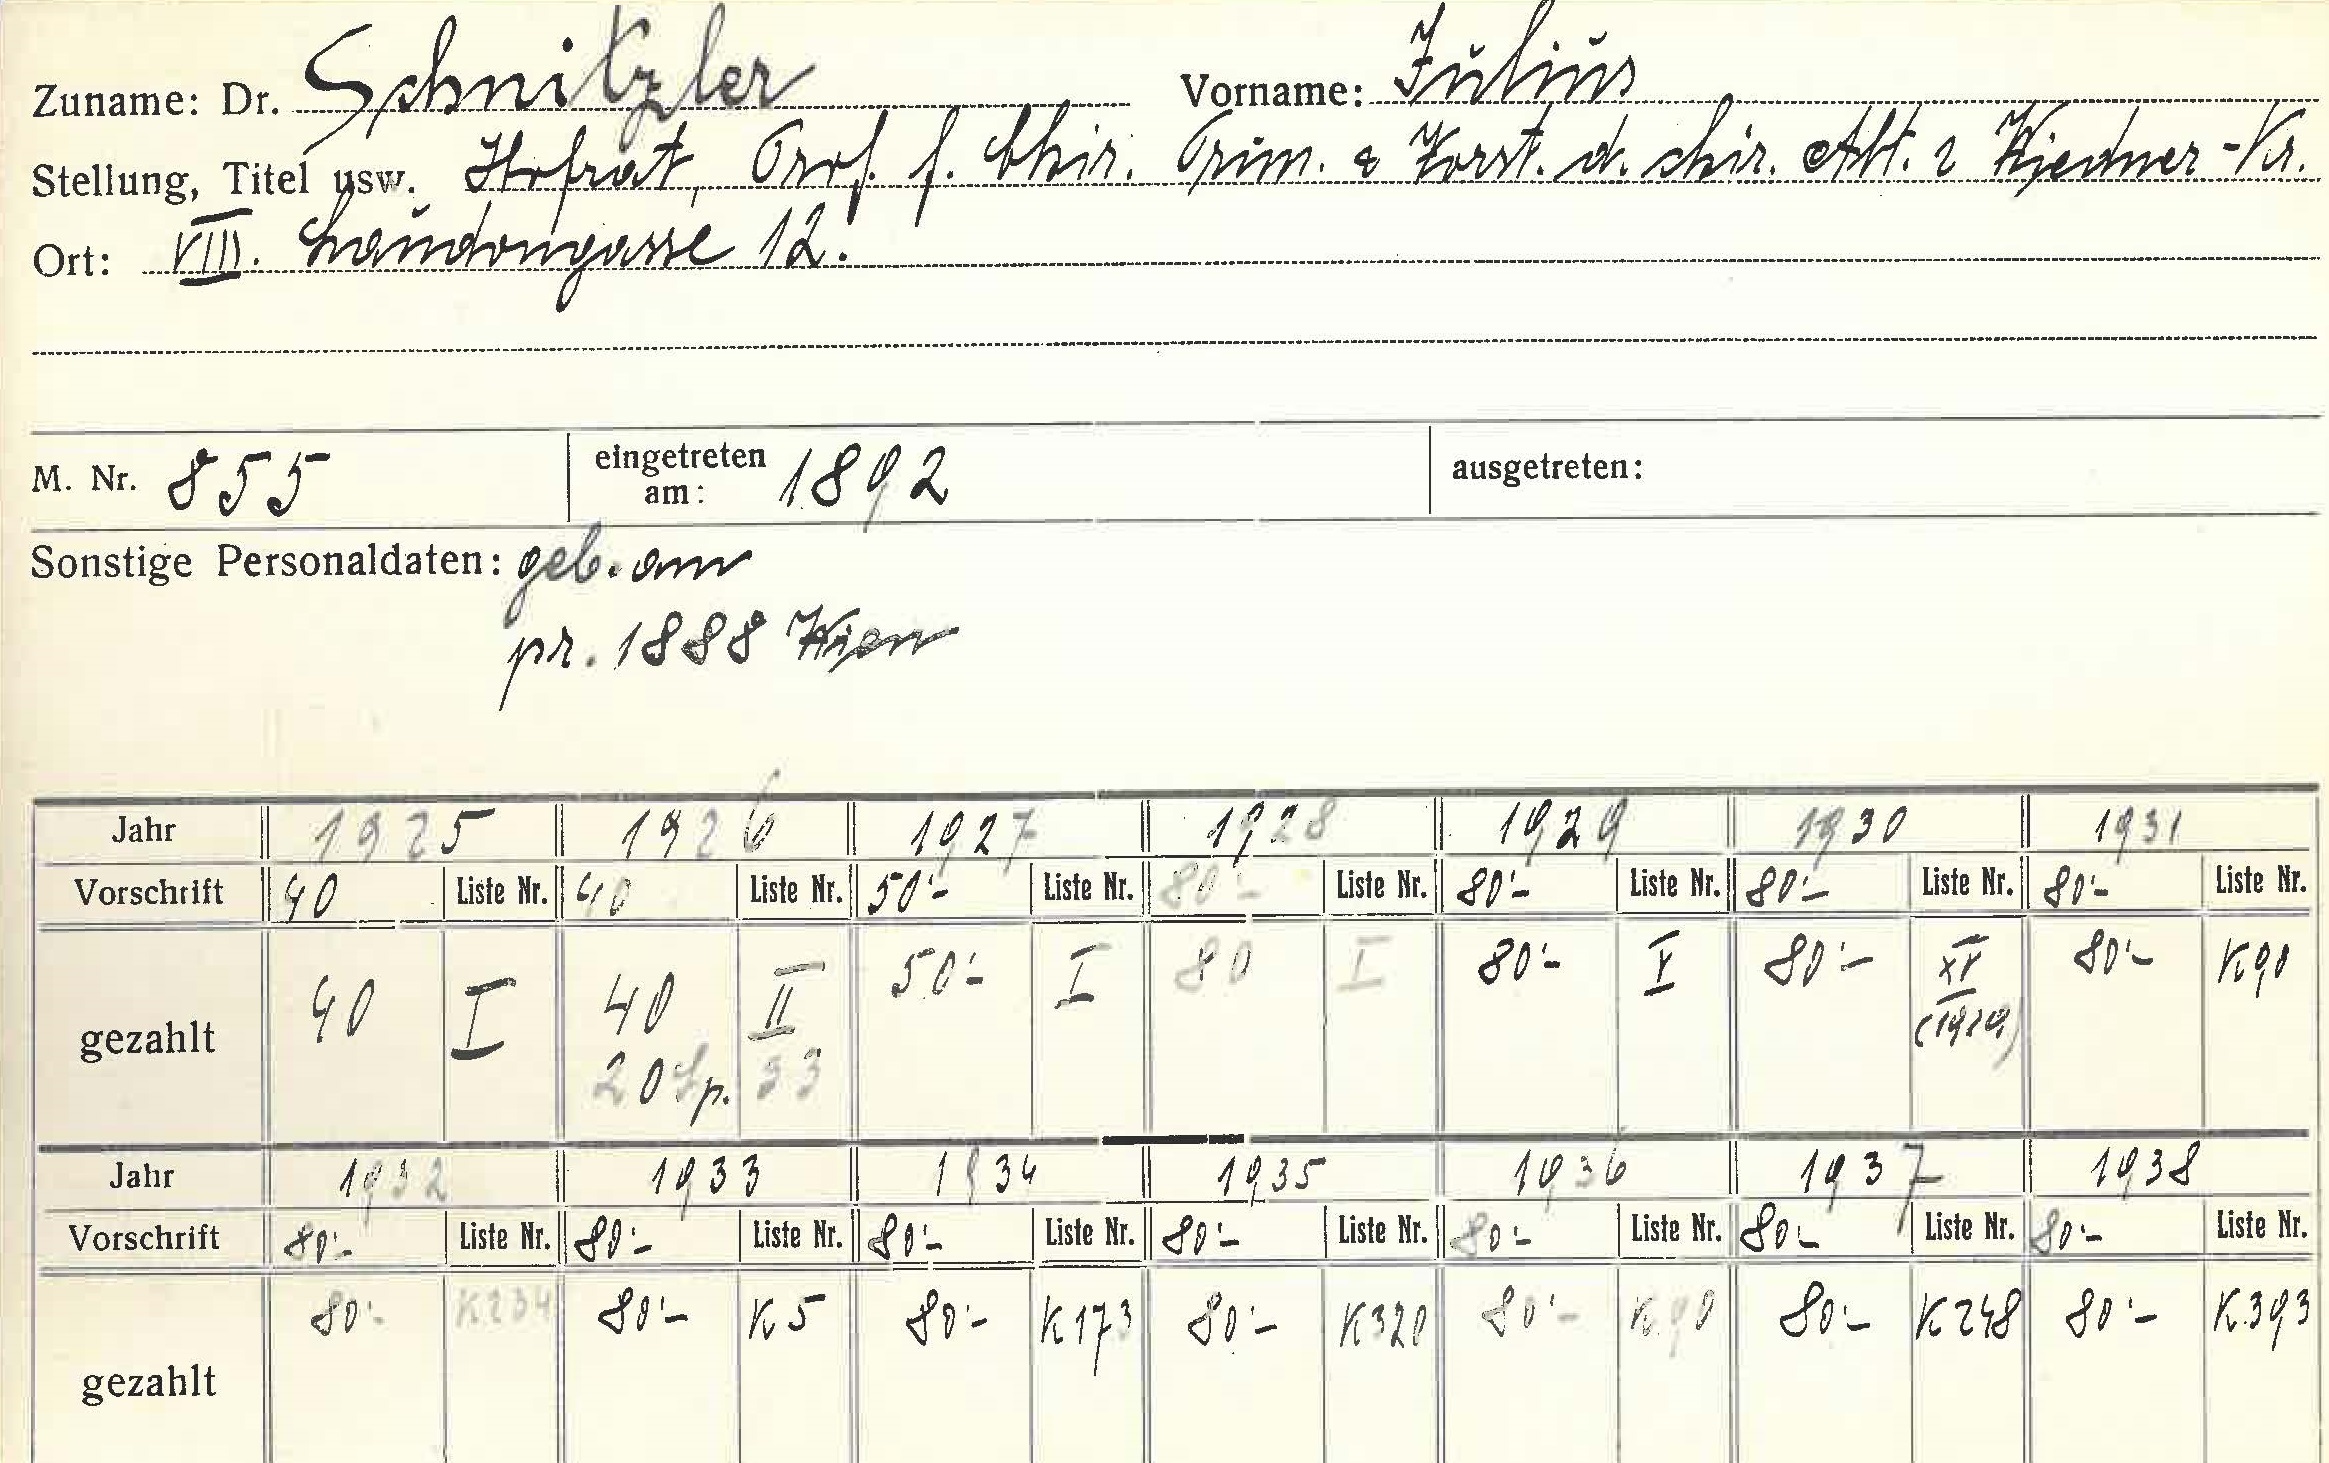 Zuname: Dr. Schnitzler Vorname: Julius
Stellung, Titel usw. Hofrat, Prof. f. Chir. Prim. & Vorst. d. chir. Abt. Wiedner-Kr.
Ort: VIII. Laudongasse 12.
M. Nr. 855 eingetreten am: 1892 ausgetreten:
Sonstige Personaldaten: geb. am
pr. 1888 Wien
Jahr 1925 1926 1927 1928 1929 1930 1931
Vorschrift 40 Liste Nr. 40 Liste Nr. 50·- Liste Nr. 80·- Liste Nr. 80·- Liste Nr. 80·- Liste Nr. 80·- Liste Nr.
gezahlt 40 I 40 II 50·- I 80 I 80·- I 80·- XV 80·- K90
20 Sp. 33 (1929)
Jahr 1932 1933 1934 1935 1936 1937 1938
Vorschrift 80·- Liste Nr. 80·- Liste Nr. 80·- Liste Nr. 80·- Liste Nr. 80·- Liste Nr. 80·- Liste Nr. 80·- Liste Nr.
gezahlt 80·- K234 80·- K5 80·- K173 80·- K320 80·- K.90 80·- K248 80·- K.393